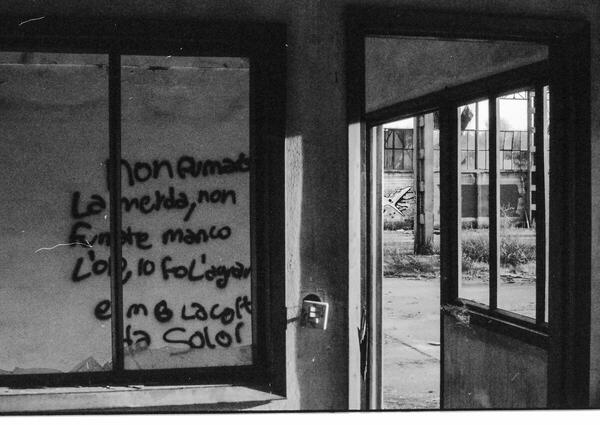 non fumate
La merda, non
fumate manco
L'opp, io fo L'agran
e m B Lacoft
da Solo!